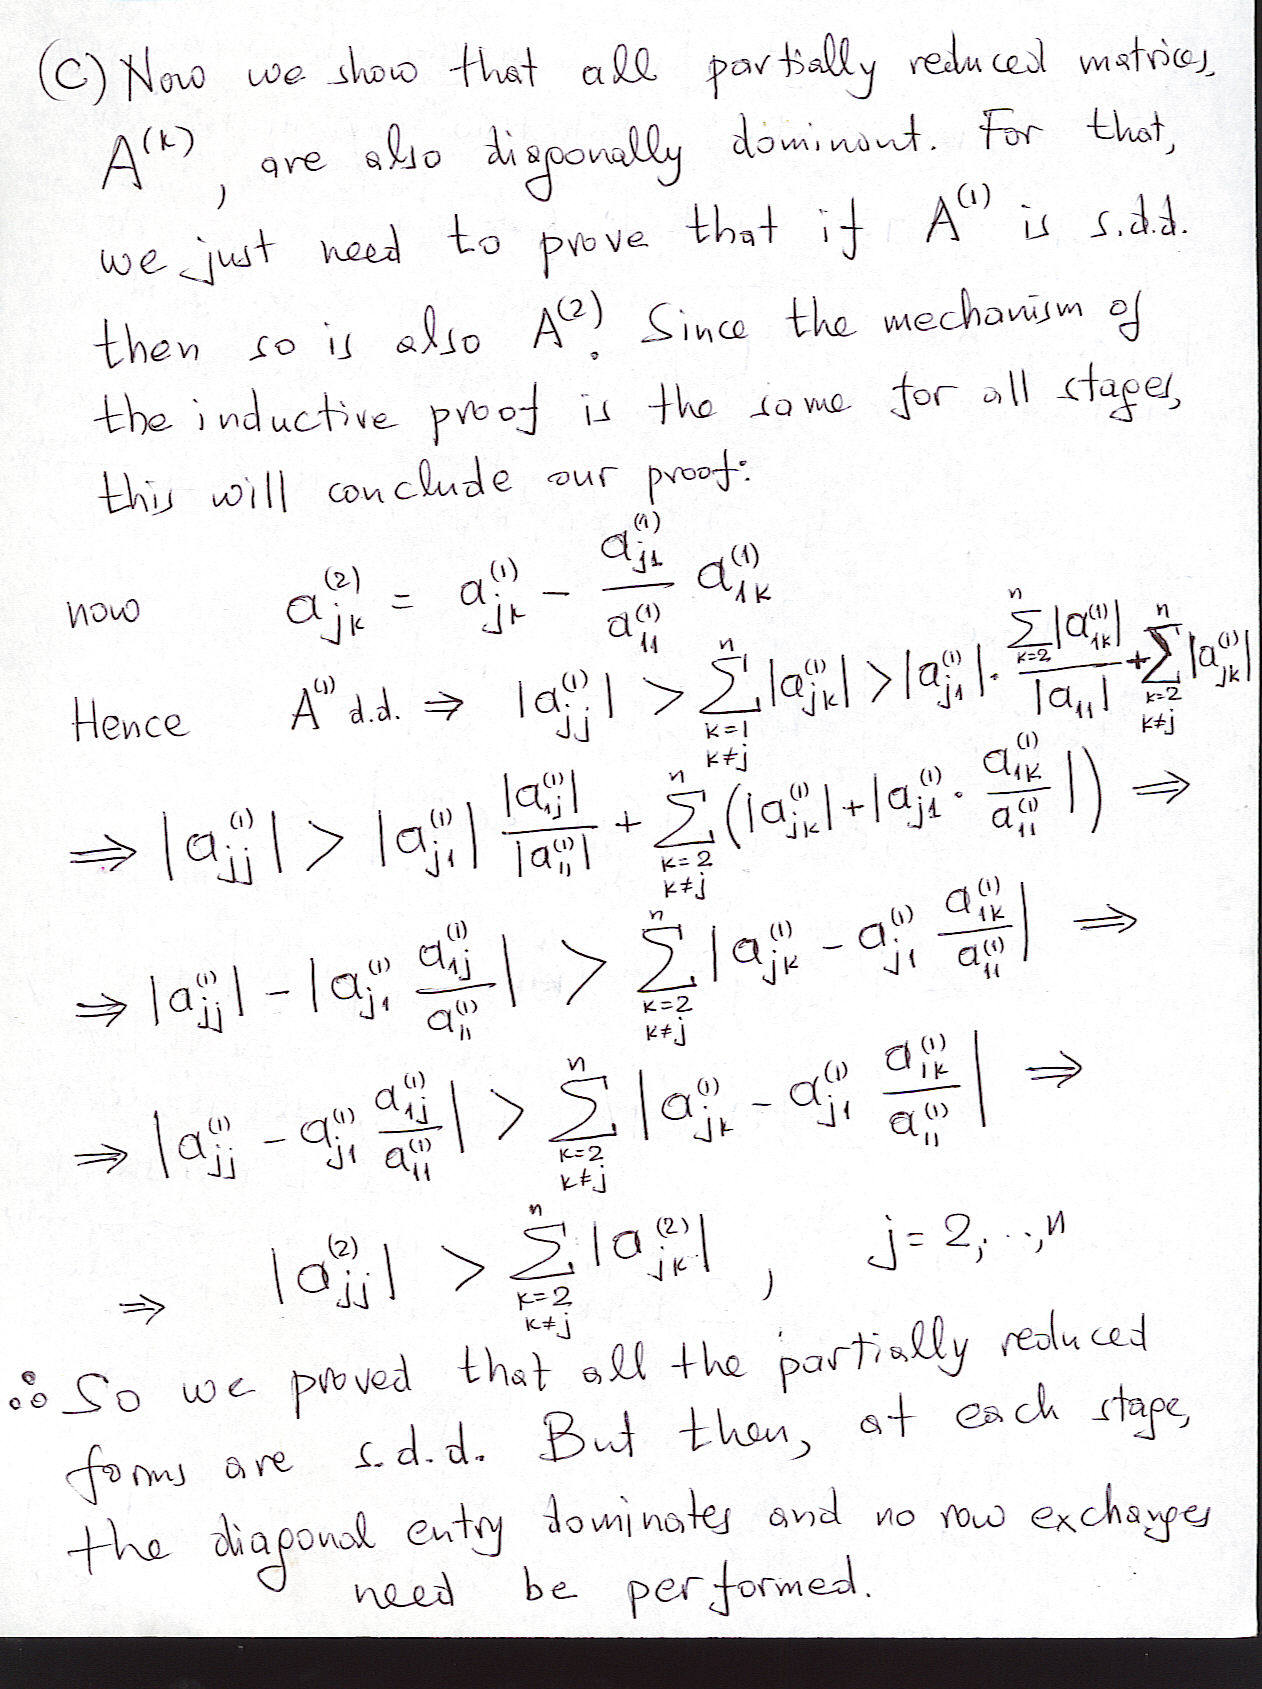 (C) Now we show that all partially reduced matrices,
A^(k), are also diagonally dominant. For that,
we just need to prove that if A^(1) is s.d.d.
then so is also A^(2). Since the mechanism of
the inductive proof is the same for all stages,
this will conclude our proof:
now a_jk^(2) = a_jk^(1) - (a_j1^(1) / a_11^(1)) a_1k^(1)
Hence A^(1) d.d. ⇒ |a_jj^(1)| > ∑_{k=1, k≠j}^n |a_jk^(1)| > |a_j1^(1)| · (∑_{k=2}^n |a_1k^(1)|) / |a_11| + ∑_{k=2, k≠j}^n |a_jk^(1)|
⇒ |a_jj^(1)| > |a_j1^(1)| |a_1j^(1)| / |a_11^(1)| + ∑_{k=2, k≠j}^n (|a_jk^(1)| + |a_j1^(1) · a_1k^(1) / a_11^(1)|) ⇒
⇒ |a_jj^(1)| - |a_j1^(1) a_1j^(1) / a_11^(1)| > ∑_{k=2, k≠j}^n |a_jk^(1) - a_j1^(1) a_1k^(1) / a_11^(1)| ⇒
⇒ |a_jj^(1) - a_j1^(1) a_1j^(1) / a_11^(1)| > ∑_{k=2, k≠j}^n |a_jk^(1) - a_j1^(1) a_1k^(1) / a_11^(1)| ⇒
⇒ |a_jj^(2)| > ∑_{k=2, k≠j}^n |a_jk^(2)|, j=2,...,n
∴ So we proved that all the partially reduced
forms are s.d.d. But then, at each stage,
the diagonal entry dominates and no row exchanges
need be performed.